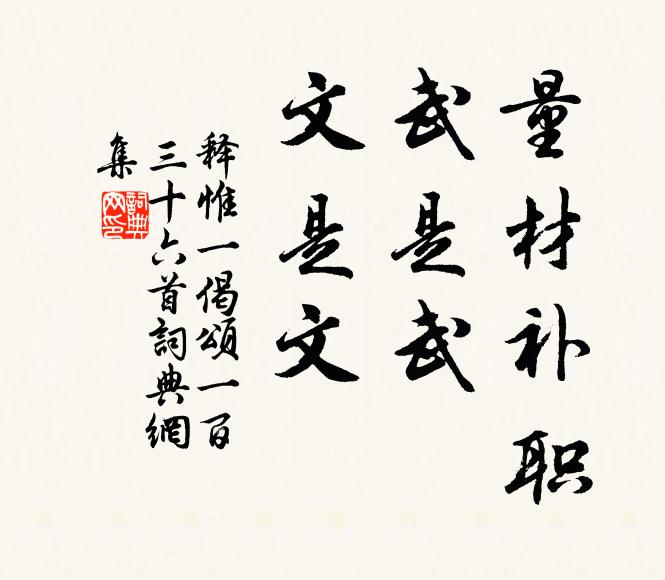 量材补职
武是武
文是文
释惟一偈颂一百
三十六首詞典網
集
詞典網印